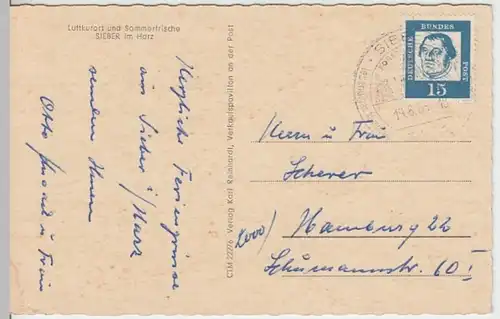 Luftkurort und Sommerfrische
SIEBER im Harz
Herzliche Feriengrüsse
aus Sieber i/Harz
senden Ihnen
Otto u Frau
CTM 22276 Verlag Kurt Reinhardt, Verkaufspavillon an der Post
DEUTSCHE BUNDESPOST
15
SIEB
14.6.6
Herrn u Frau
Scherer
2000/ Hamburg 22
Schumannstr. 60 I